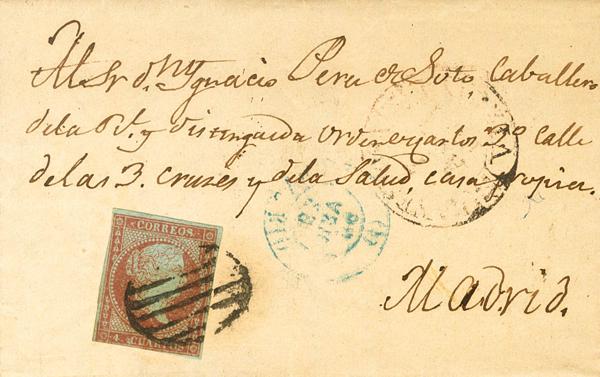 Al Sr. d.n Ygnacio Peru de Soto Caballero
de la Rl. y distinguida orden
2º calle
de las 3. Cruzes y de la Salud, casa propia.
Madrid.
CORREOS
4 CUARTOS